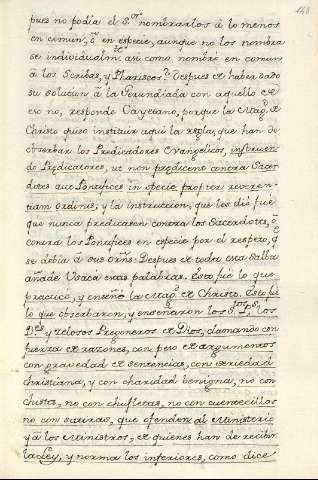 148
pues no podia el S.ᵒʳ nombrarlos â lo menos
en comun, ô en especie, aunque no los nombra
se individualm.ᵗᵉ asi como nombrò en comun
â los Scribas, y Phariseos? Despues de haber dado
su solucion â la Ferundiada con aquello de
eso no, responde Cayetano, porque la Mag.ᵈ de
Christo quiso instituir aqui la regla, que han de
observar los Predicadores Evangelicos, instruen-
do Predicatores, ut non predicent contra Sacer
dotes aut Pontifices in specie propter reveren-
tiam ordinis; y la instruccion, que les diò fuè
que nunca predicasen contra los Sacerdotes, ô
contra los Pontifices en especie por el respeto, q̃
se debia â sus orñs: Despues de toda esta Salba
añade Usaca esas palabras. Esto fuè lo que
practicò, y enseñò la Mag.ᵈ de Christo. Esto fuè
lo que observaron, y enseñaron los S.ᵗᵒˢ P.ˢ, los
D.ʳᵉˢ y zelosos Pregoneros de Dios, clamando con
fuerza de razones, con peso de argumentos
con gravedad de sentencias, con seriedad
christiana, y con charidad benigna, no con
chistes, no con chufletas, no con cuentecillos
no con satiras, que ofenden al Ministerio
y â los Ministros, de quienes han de recibir
la Ley, y norma los inferiores, como dice